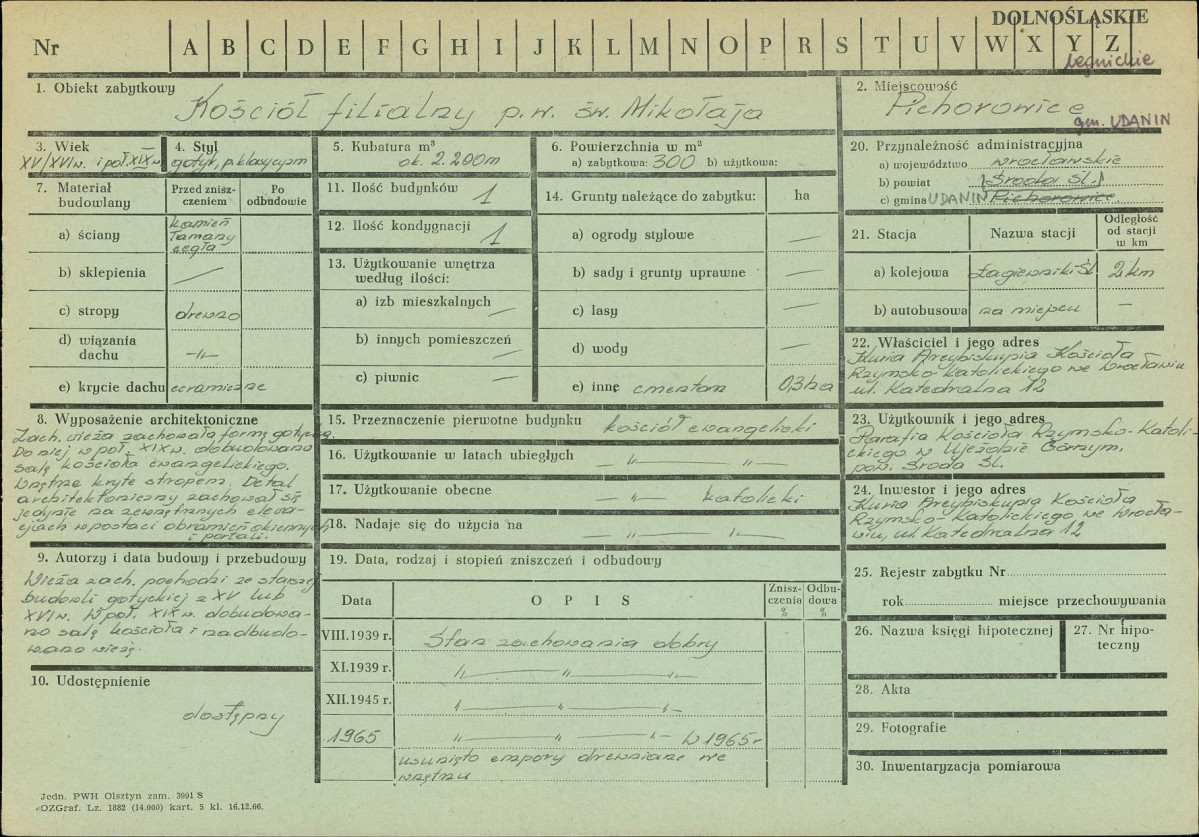 DOLNOŚLĄSKIE
Nr A B C D E F G H I J K L M N O P R S T U V W X Y Z
legnickie
1. Obiekt zabytkowy
Kościół filialny p.w. św. Mikołaja
2. Miejscowość
Pichorowice
gm. UDANIN
3. Wiek
XV/XVI w. i poł. XIX w.
4. Styl
gotyk, p. klasycyzm
5. Kubatura m³
ok. 2.200m
6. Powierzchnia w m²
a) zabytkowa: 300 b) użytkowa:
7. Materiał budowlany
Przed zniszczeniem
Po odbudowie
a) ściany
kamień
łamany
cegła
b) sklepienia —
c) stropy drewno
d) wiązania dachu —"—
e) krycie dachu ceramiczne
8. Wyposażenie architektoniczne
Zach. wieża zachowała formę gotycką.
Do niej w poł. XIX w. dobudowano
salę kościoła ewangelickiego.
Wnętrze kryte stropem. Detal
architektoniczny zachował się
jedynie na zewnętrznych elewa-
cjach w postaci obramień okiennych
i portali.
9. Autorzy i data budowy i przebudowy
Wieża zach. pochodzi ze starszej
budowli gotyckiej z XV lub
XVI w. W poł. XIX w. dobudowa-
no salę kościoła i nadbudo-
wano wieżę.
10. Udostępnienie
dostępny
11. Ilość budynków 1
12. Ilość kondygnacji 1
13. Użytkowanie wnętrza
według ilości:
a) izb mieszkalnych —
b) innych pomieszczeń —
c) piwnic —
14. Grunty należące do zabytku: ha
a) ogrody stylowe —
b) sady i grunty uprawne —
c) lasy —
d) wody —
e) inne cmentarz 0,3 ha
15. Przeznaczenie pierwotne budynku kościół ewangelicki
16. Użytkowanie w latach ubiegłych — " — " —
17. Użytkowanie obecne — " — katolicki
18. Nadaje się do użycia na — " — " —
19. Data, rodzaj i stopień zniszczeń i odbudowy
Data
O P I S
Znisz-
czenia
%
Odbu-
dowa
%
VIII.1939 r. Stan zachowania dobry
XI.1939 r. — " — " —
XII.1945 r. — " — " —
1965 — " — " — W 1965 r
usunięto empory drewniane we
wnętrzu
20. Przynależność administracyjna
a) województwo wrocławskie
b) powiat (Środa Śl.)
c) gmina UDANIN Pichorowice
21. Stacja
Nazwa stacji
Odległość
od stacji
w km
a) kolejowa Łagiewniki Śl. 2 km
b) autobusowa na miejscu —
22. Właściciel i jego adres
Kuria Arcybiskupia Kościoła
Rzymsko-Katolickiego we Wrocławiu
ul. Katedralna 12
23. Użytkownik i jego adres
Parafia Kościoła Rzymsko-Katoli-
ckiego w Ujeździe Górnym,
pow. Środa Śl.
24. Inwestor i jego adres
Kuria Arcybiskupia Kościoła
Rzymsko-Katolickiego we Wrocła-
wiu, ul. Katedralna 12
25. Rejestr zabytku Nr
rok miejsce przechowywania
26. Nazwa księgi hipotecznej
27. Nr hipo-
teczny
28. Akta
29. Fotografie
30. Inwentaryzacja pomiarowa
Jedn. PWH Olsztyn zam. 3991 S
OZGraf. Lz. 1882 (14.000) kart. 5 kl. 16.12.66.